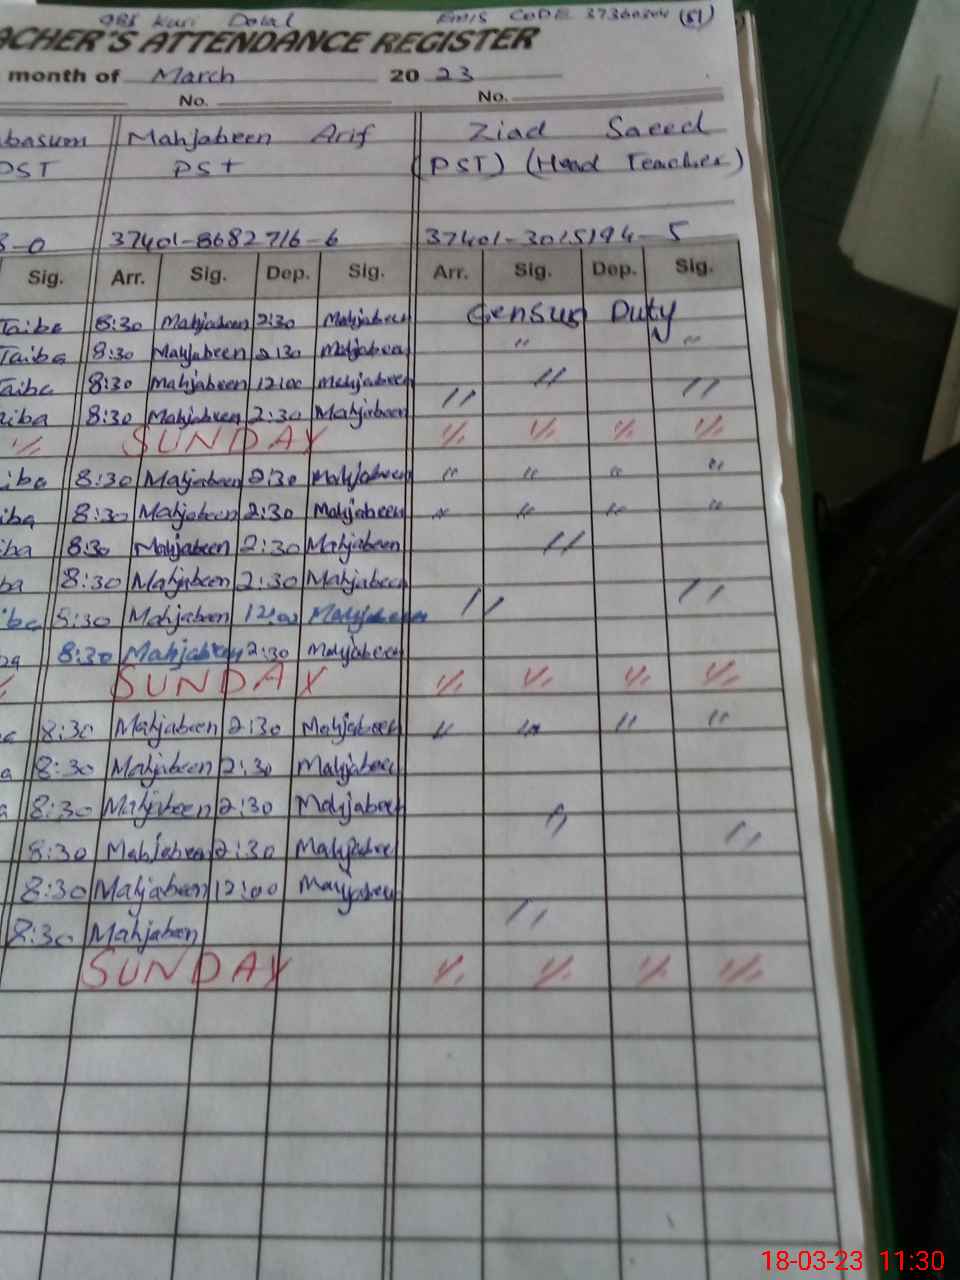 Kari Dolal EMIS CODE 37360204 (51)
ACHER'S ATTENDANCE REGISTER
month of March 20 23
No. No.
basum Mahjabeen Arif Ziad Saeed
PST PST (PST) (Head Teacher)
3-0 37401-8682716-6 37401-3015194-5
Sig. Arr. Sig. Dep. Sig. Arr. Sig. Dep. Sig.
Taiba 8:30 Mahjabeen 2:30 Mahjabeen Census Duty
Taiba 8:30 Mahjabeen 2:30 Mahjabeen " "
Taiba 8:30 Mahjabeen 12:00 Mahjabeen " " "
aiba 8:30 Mahjabeen 2:30 Mahjabeen
SUNDAY
iba 8:30 Mahjabeen 2:30 Mahjabeen " " " "
iba 8:30 Mahjabeen 2:30 Mahjabeen " " " "
iba 8:30 Mahjabeen 2:30 Mahjabeen "
ba 8:30 Mahjabeen 2:30 Mahjabeen
iba 8:30 Mahjabeen 12:00 Mahjabeen " "
ba 8:30 Mahjabeen 2:30 Mahjabeen
SUNDAY
a 8:30 Mahjabeen 2:30 Mahjabeen " " " "
a 8:30 Mahjabeen 2:30 Mahjabeen
a 8:30 Mahjabeen 2:30 Mahjabeen "
8:30 Mahjabeen 2:30 Mahjabeen "
8:30 Mahjabeen 12:00 Mahjabeen
8:30 Mahjabeen "
SUNDAY
18-03-23 11:30